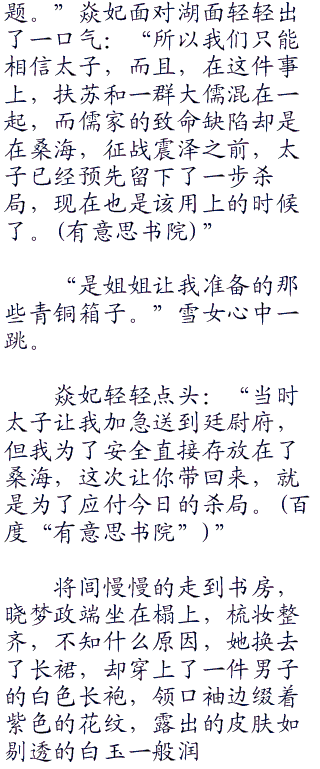 题。”焱妃面对湖面轻轻出
了一口气：“所以我们只能
相信太子，而且，在这件事
上，扶苏和一群大儒混在一
起，而儒家的致命缺陷却是
在桑海，征战震泽之前，太
子已经预先留下了一步杀
局，现在也是该用上的时候
了。(有意思书院)”
“是姐姐让我准备的那
些青铜箱子。”雪女心中一
跳。
焱妃轻轻点头：“当时
太子让我加急送到廷尉府，
但我为了安全直接存放在了
桑海，这次让你带回来，就
是为了应付今日的杀局。(百
度“有意思书院”)”
将闾慢慢的走到书房，
晓梦政端坐在榻上，梳妆整
齐，不知什么原因，她换去
了长裙，却穿上了一件男子
的白色长袍，领口袖边缀着
紫色的花纹，露出的皮肤如
剔透的白玉一般润